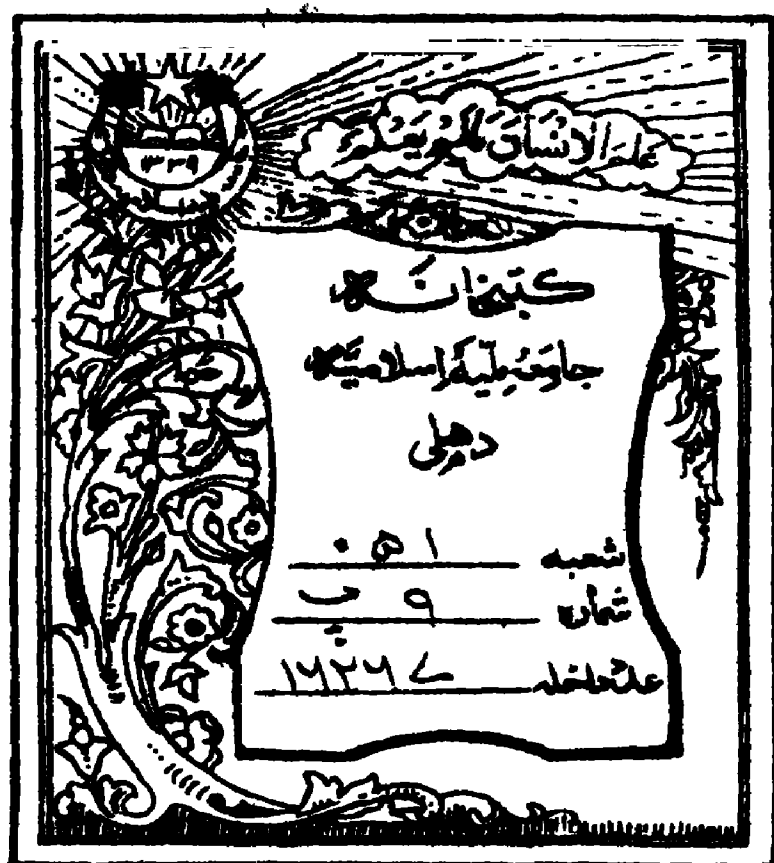 علم الانسان مالم يعلم
۱۳۳۹
کتبخانہ
جامعہ ملیہ اسلامیہ
دھلی
شعبہ ۰۵۱
شمارہ ۹ ب
عدد داخلہ ۱۶۲۶۷